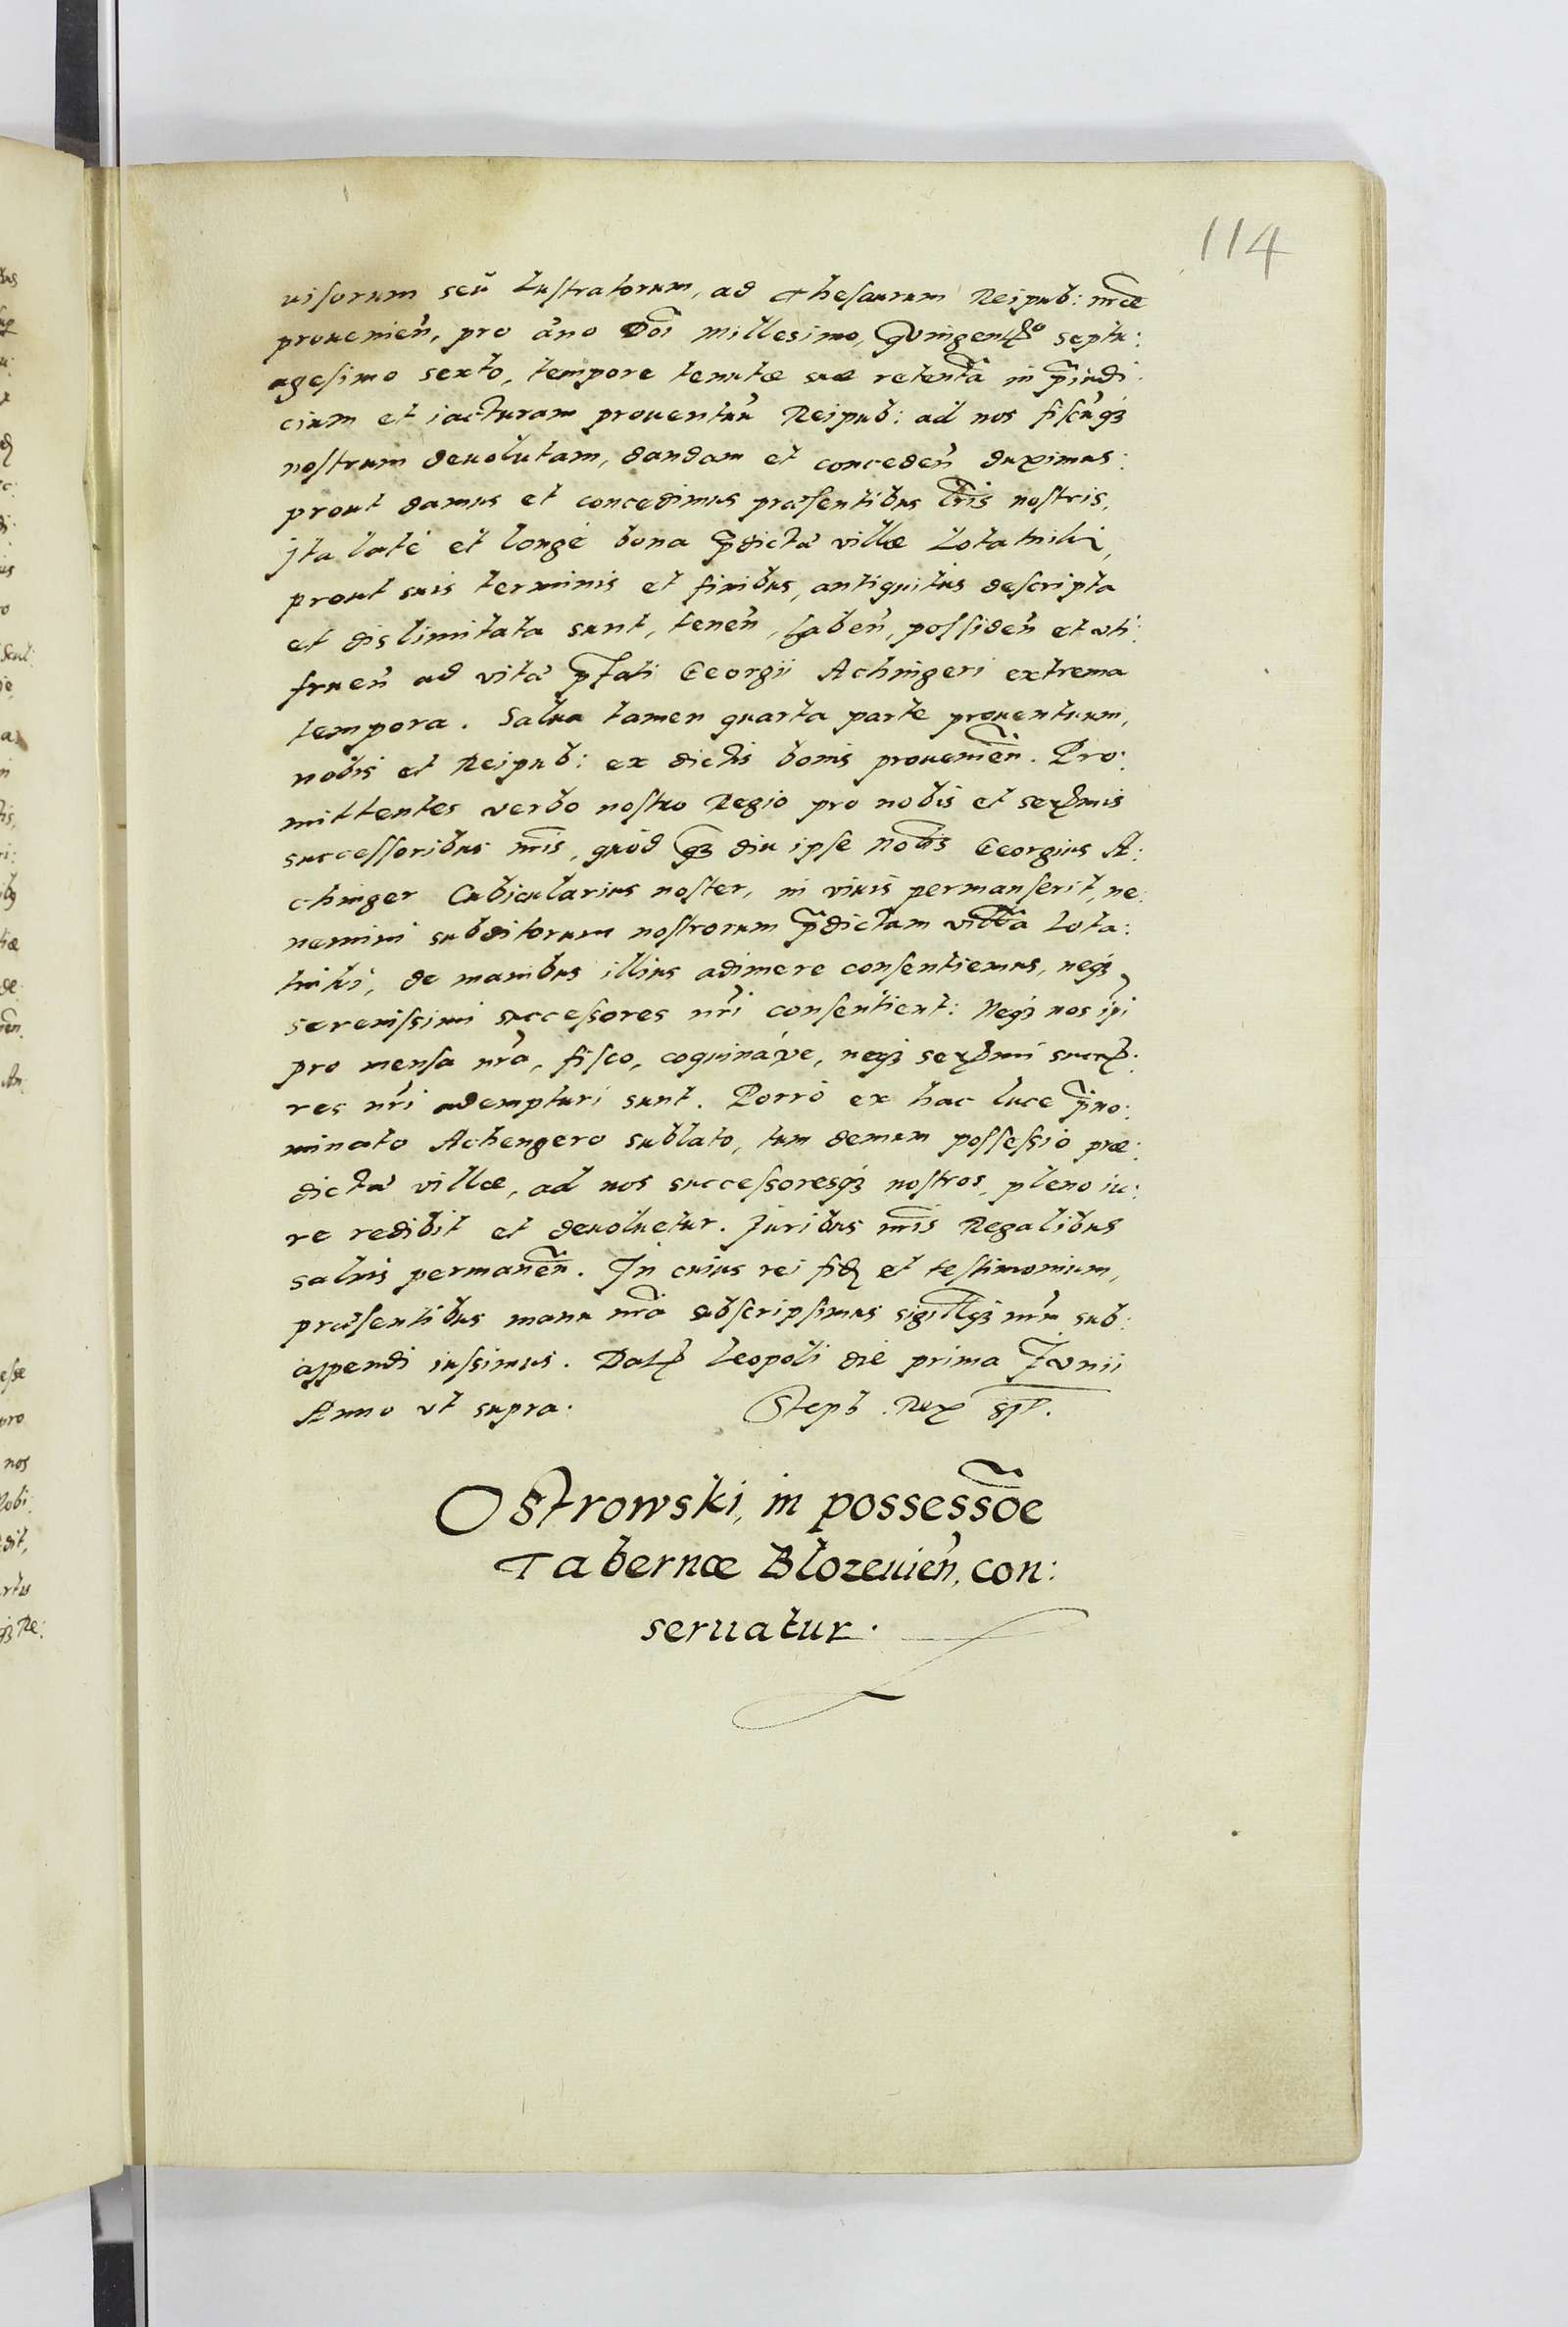 114
uisorum seu Lustratorum, ad thesaurum Reipub: nrae
prouenien̄, pro an̄o Dn̄i Millesimo, Quingentmo septu:
agesimo sexto, tempore tenutæ suæ retentã in p̄iudi
cium et iacturam prouentuũ Reipub: ad nos fiscũqꝫ
nostrum deuolutam, dandam et conceden̄ duximus:
prout damus et concedimus præsentibus Lr̃is nostris,
Ita latè et longè bona p̄dictæ villæ Lotatniki,
prout suis terminis et finibus, antiquitus descripta
et dislimitata sunt, tenen̄, haben̄, possiden̄ et vti:
fruen̄ ad vitæ p̄fati Georgii Achingeri extrema
tempora. Salua tamen quarta parte prouentuum,
nobis et Reipub: ex dictis bonis prouenien̄. Pro:
mittentes verbo nostro Regio pro nobis et serẽmis
successoribus nr̃is, quòd qꝫ diu ipse Nobĩs Georgius A:
chinger Cubicularius noster, in viuis permanserit, ne
nemini subditorum nostrorum p̄dictam villã Lota:
tniki, de manibus illius adimere consentiemus, neqꝫ
serenissimi successores nr̃i consentient: Neqꝫ nos ip̃i
pro mensa nr̃a, fisco, coquináve, neqꝫ serẽmi succeß:
res nr̃i adempturi sunt. Porrò ex hac luce p̄no:
minato Achengero sublato, tum demum possessio præ:
dictæ villæ, ad nos successoresqꝫ nostros, pleno iu:
re redibit et deuoluetur. Iuribus nr̃is Regalibus
saluis permanen̄. In cuius rei fidẽ et testimonium,
præsentibus manu nr̃a subscripsimus sigillũqꝫ nr̃m sub:
appendi iussimus. Datũ Leopoli die prima Iunii
Anno vt supra. Steph. Rex sst.
Ostrowski, in possessõe
Tabernæ Blozeuien̄, con:
seruatur.